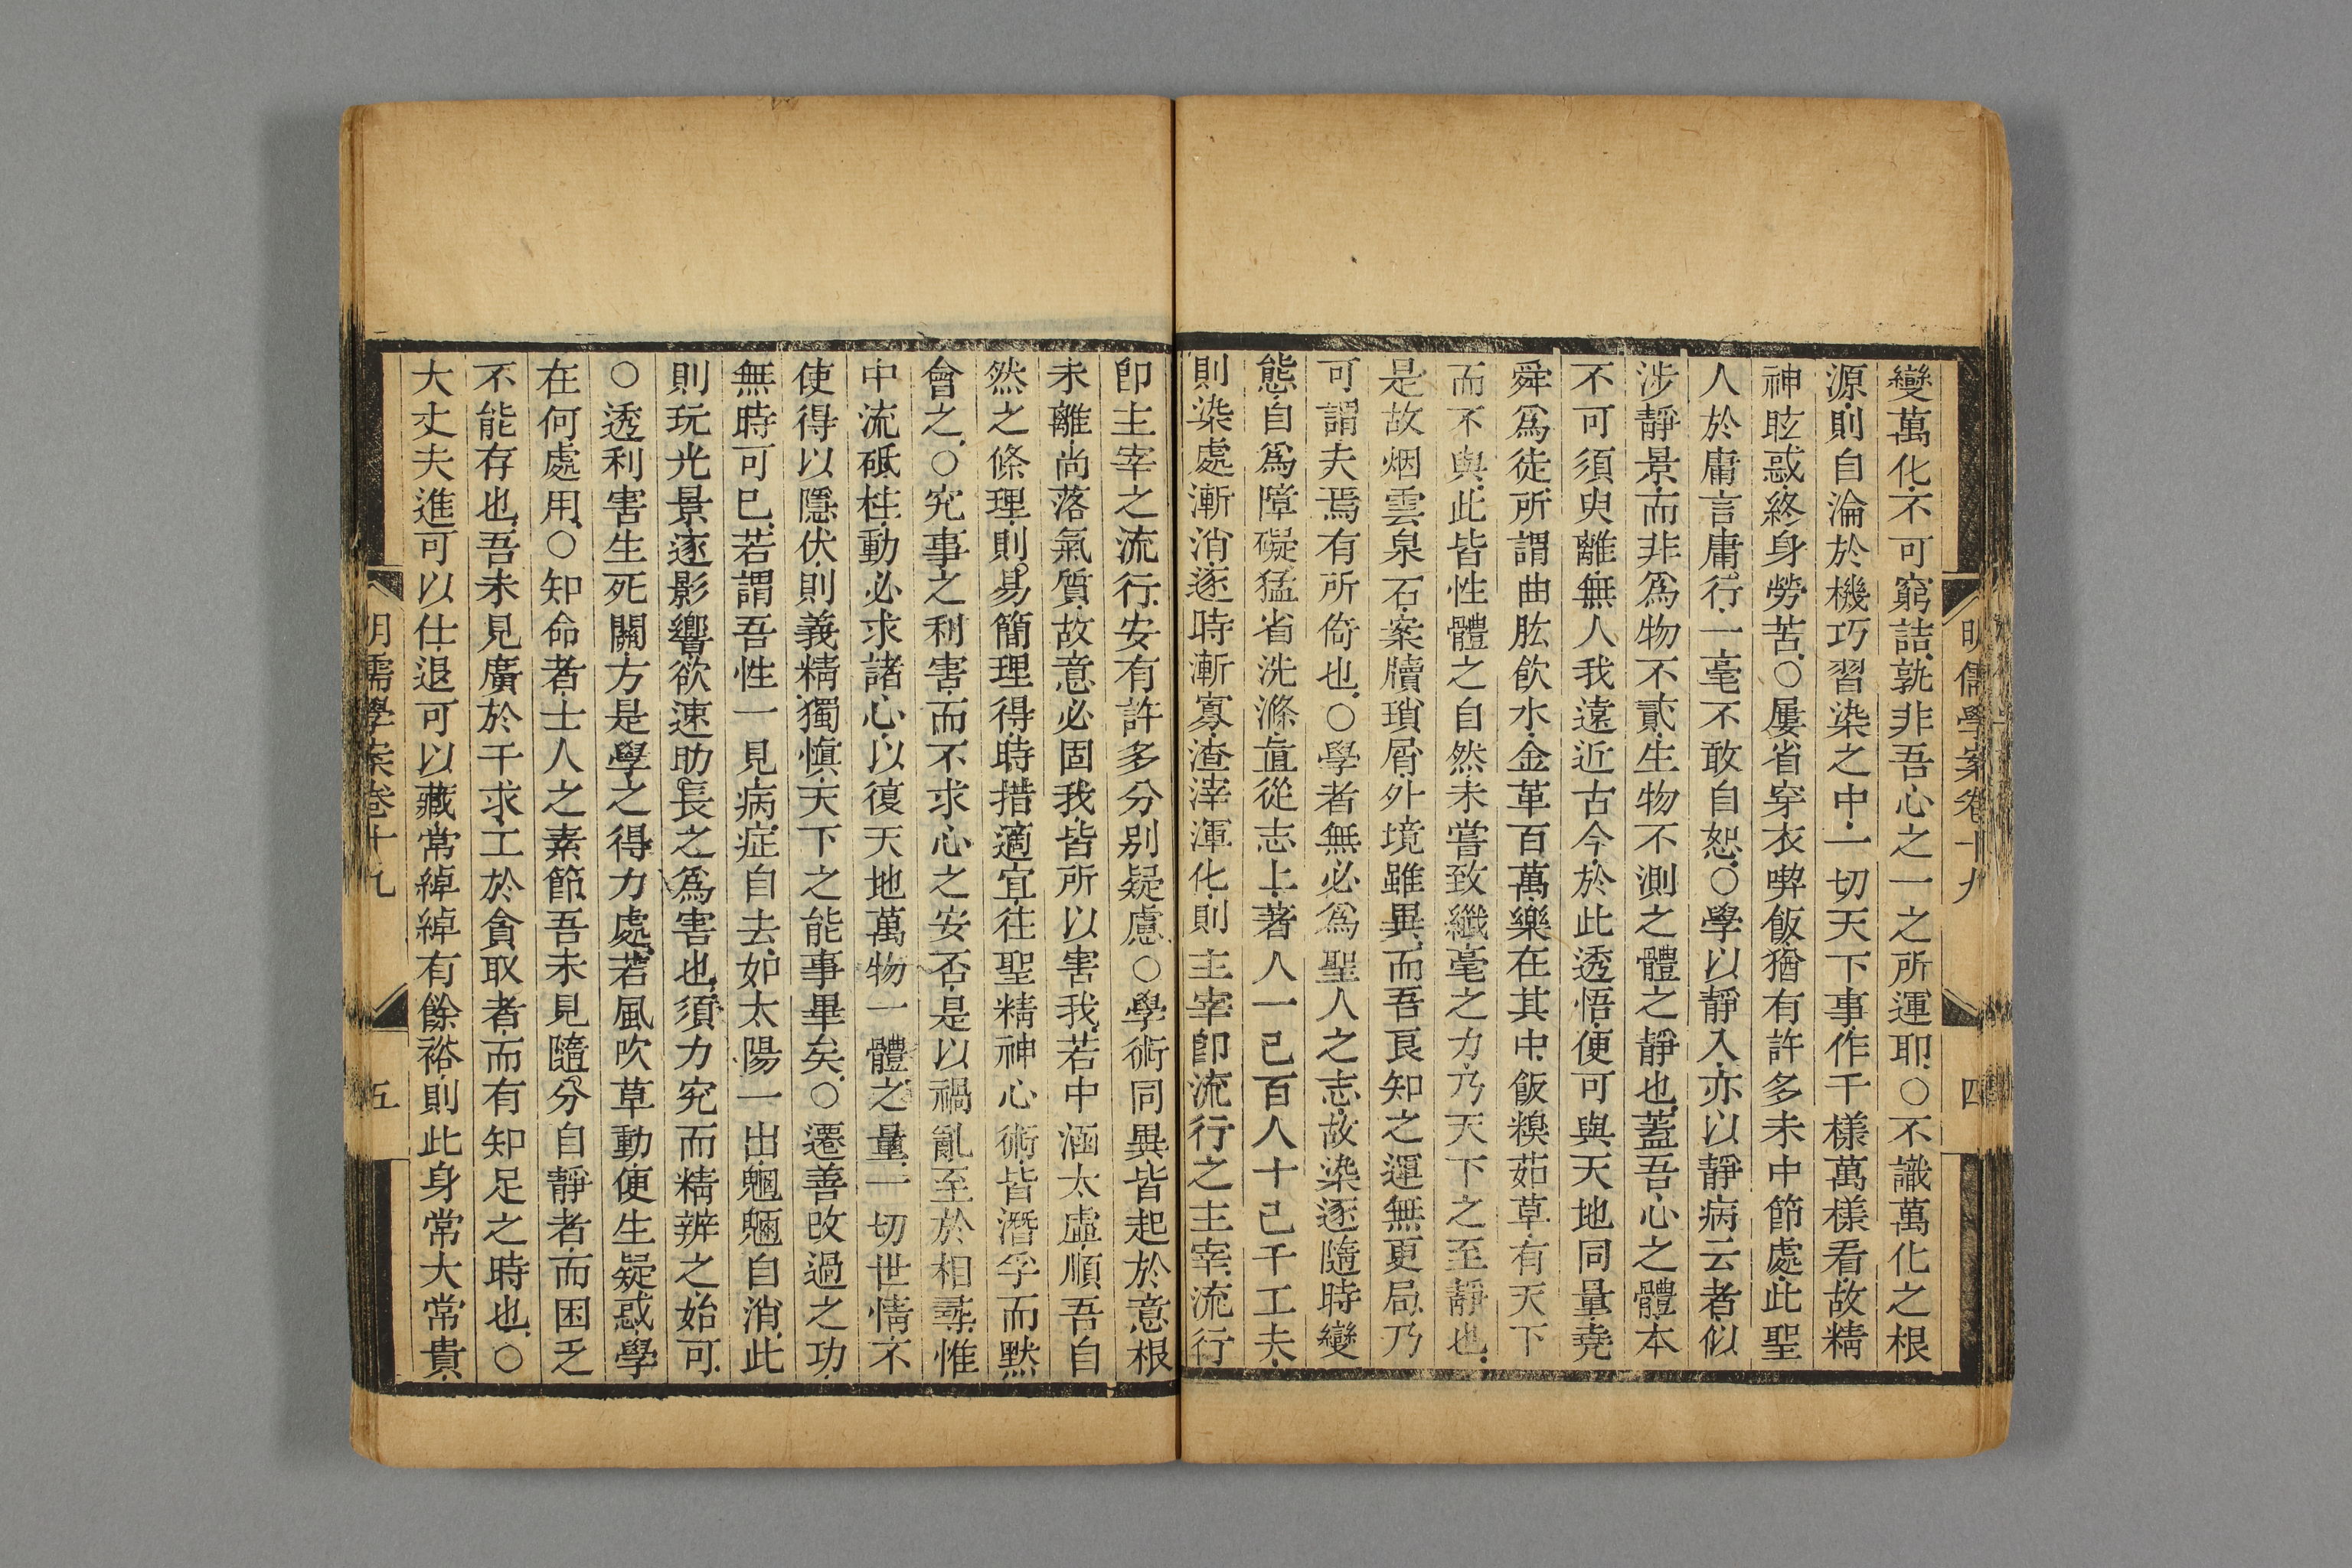 明儒學案卷十九
四
變萬化不可窮詰孰非吾心之一之所運耶○不識萬化之根
源則自淪於機巧習染之中一切天下事作千樣萬樣看故精
神眩惑終身勞苦○屢省穿衣喫飯猶有許多未中節處此聖
人於庸言庸行一毫不敢自恕○學以靜入亦以靜病云者似
涉靜景而非爲物不貳生物不測之體之靜也蓋吾心之體本
不可須臾離無人我遠近古今於此透悟便可與天地同量堯
舜爲徒所謂曲肱飲水金革百萬樂在其中飯糗茹草有天下
而不與此皆性體之自然未嘗致纖毫之力乃天下之至靜也
是故烟雲泉石案牘瑣屑外境雖異而吾良知之運無更局乃
可謂夫焉有所倚也○學者無必爲聖人之志故染逐隨時變
態自爲障礙猛省洗滌直從志上著人一己百人十己千工夫
則染處漸消逐時漸寡渣滓渾化則主宰卽流行之主宰流行
卽主宰之流行安有許多分别疑慮○學術同異皆起於意根
未離尚落氣質故意必固我皆所以害我若中涵太虛順吾自
然之條理則易簡理得時措適宜往聖精神心術皆潛孚而默
會之○究事之利害而不求心之安否是以禍亂至於相尋惟
中流砥柱動必求諸心以復天地萬物一體之量一切世情不
使得以隱伏則義精獨慎天下之能事畢矣○遷善改過之功
無時可已若謂吾性一見病症自去如太陽一出魍魎自消此
則玩光景逐影響欲速助長之爲害也須力究而精辨之始可
○透利害生死關方是學之得力處若風吹草動便生疑惑學
在何處用○知命者士人之素節吾未見隨分自靜者而困乏
不能存也吾未見廣於干求工於貪取者而有知足之時也○
大丈夫進可以仕退可以藏常綽綽有餘裕則此身常大常貴
明儒學案卷十九
五